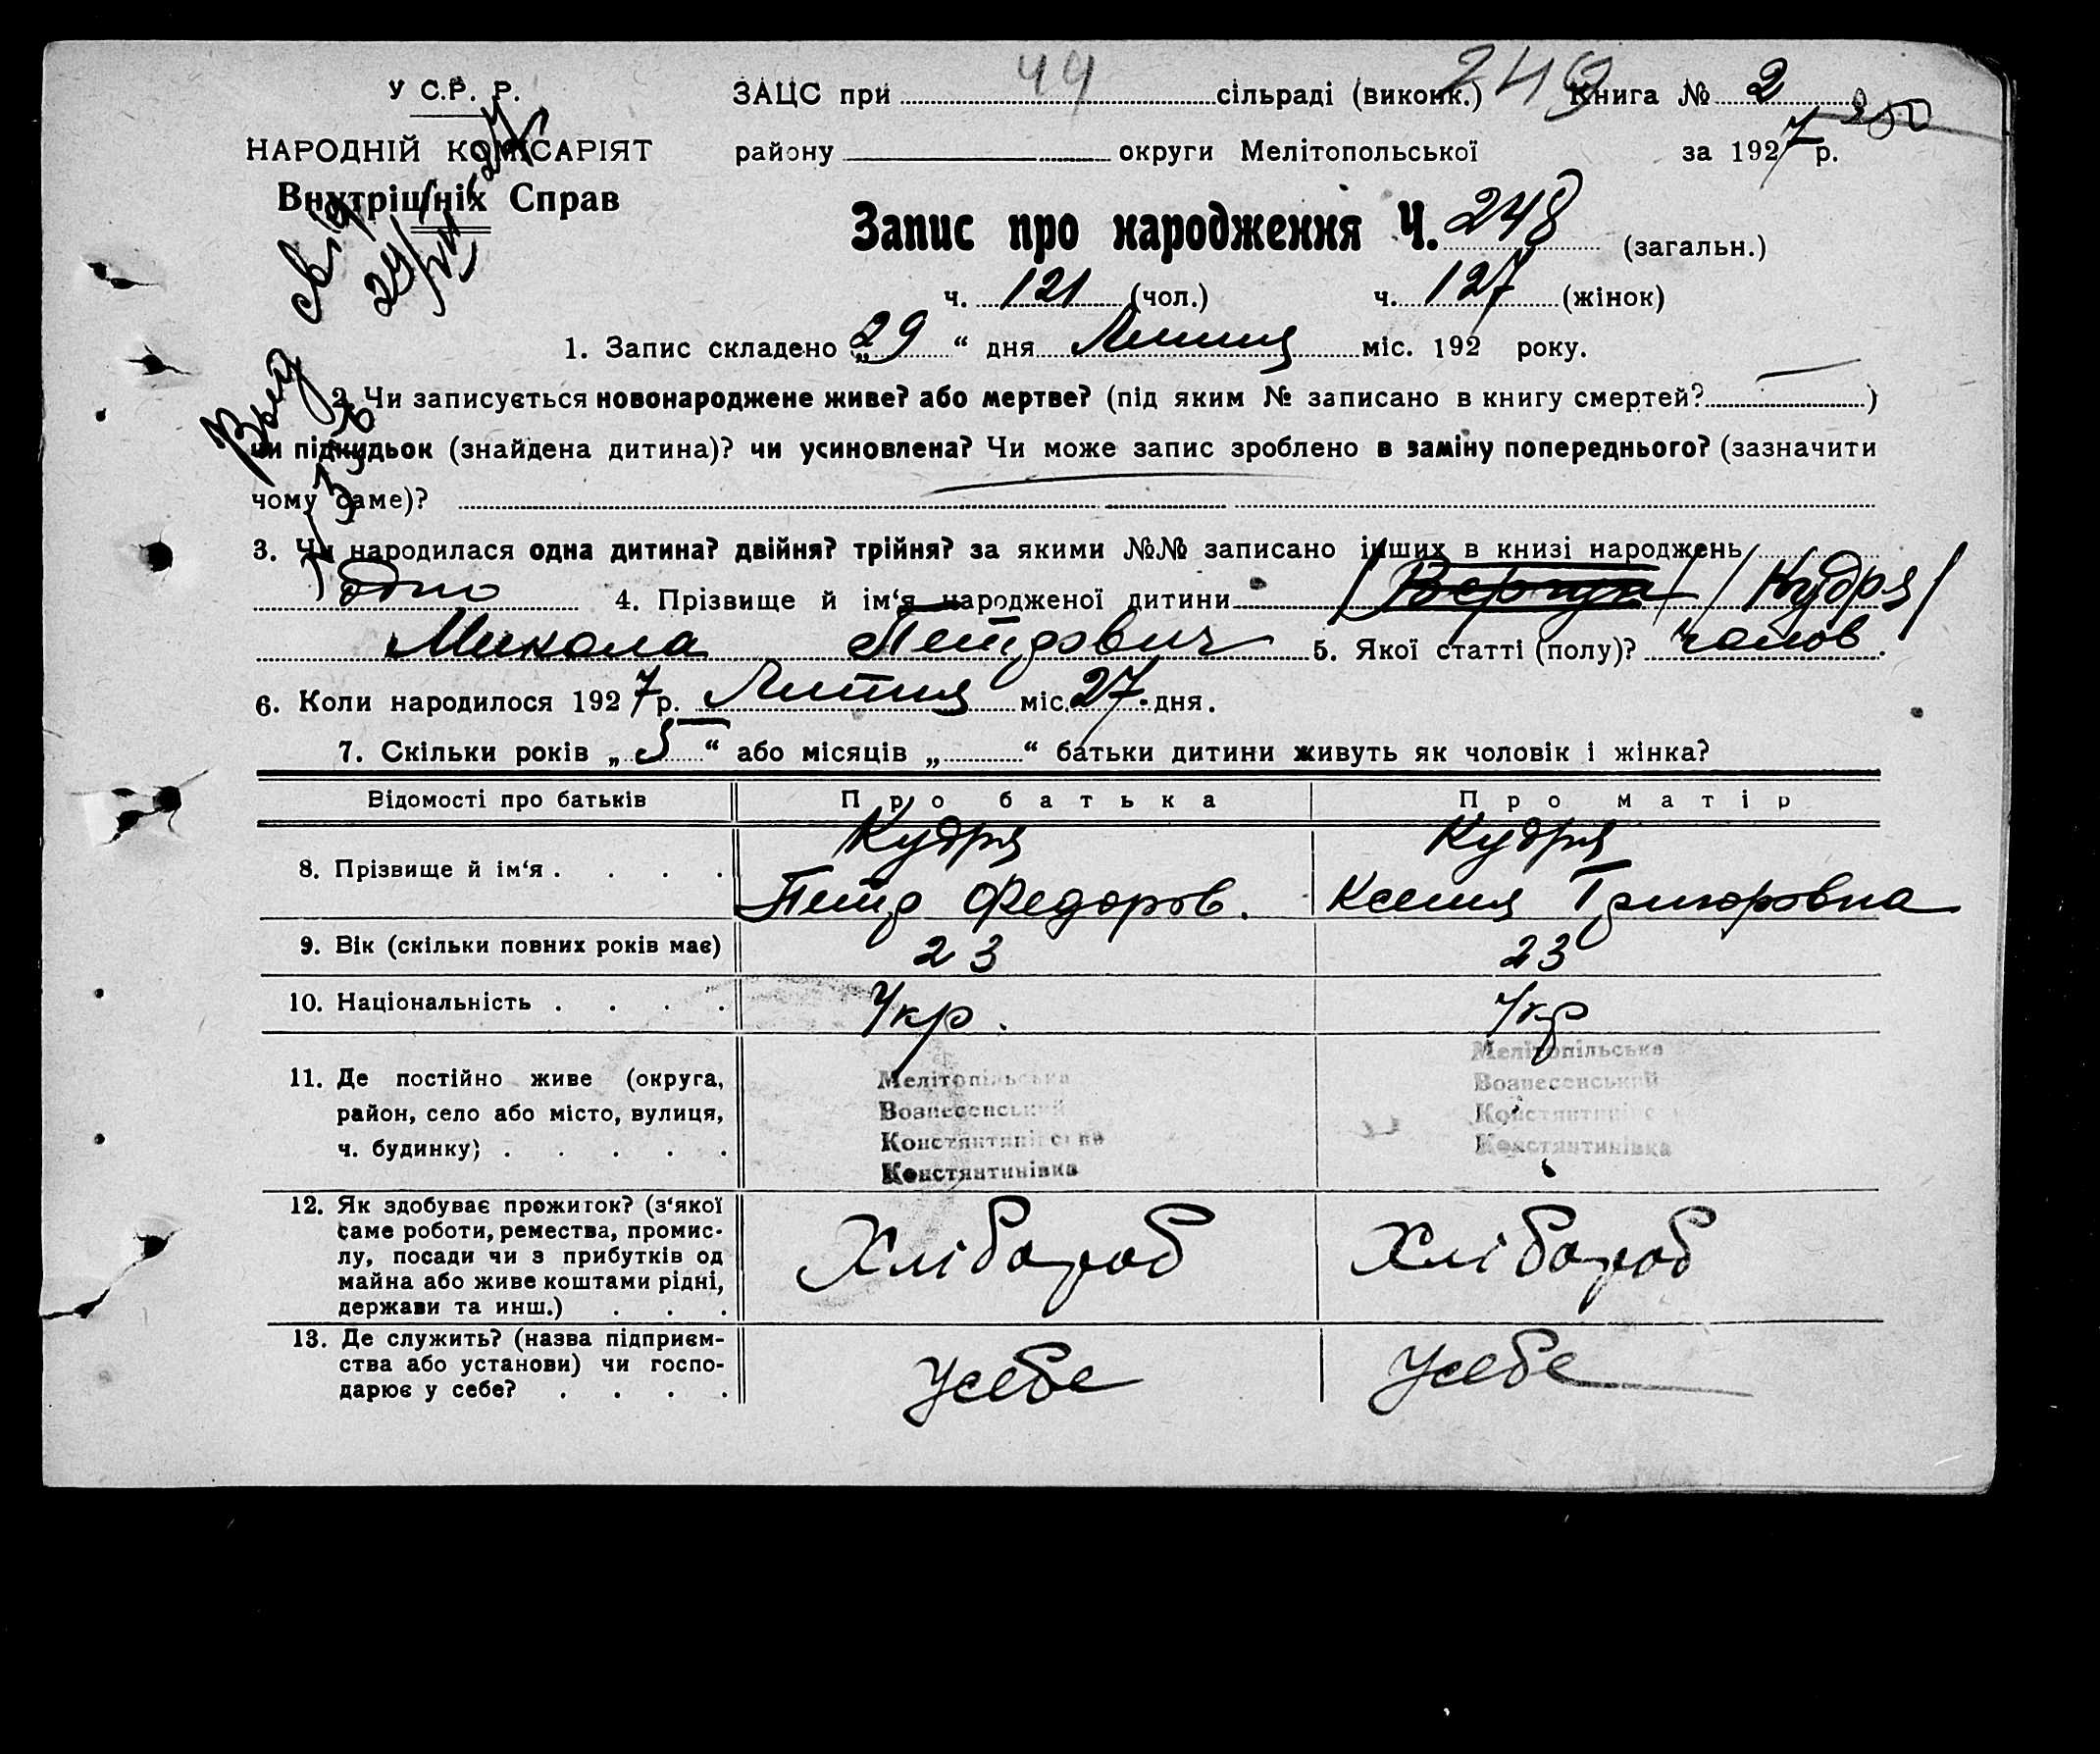 44 249
У С.Р. Р. ЗАЦС при сільраді (виконк.) Книга № 2
250
НАРОДНІЙ КОМІСАРІЯТ району округи Мелітопольської за 1927 р.
Внутрішніх Справ
Запис про народження Ч. 248 (загальн.)
ч. 121 (чол.) ч. 127 (жінок)
1. Запис складено „29“ дня Липня міс. 192 року.
2. Чи записується новонароджене живе? або мертве? (під яким № записано в книгу смертей? )
чи підкидьок (знайдена дитина)? чи усиновлена? Чи може запис зроблено в заміну попереднього? (зазначити
чому саме)?
3. Чи народилася одна дитина? двійня? трійня? за якими №№ записано інших в книзі народжень
одно 4. Прізвище й ім‘я народженої дитини / Кудря /
Микола Петрович 5. Якої статті (полу)? чолов.
6. Коли народилося 1927 р. Липня міс. 27 дня.
7. Скільки років „5“ або місяців „ “ батьки дитини живуть як чоловік і жінка?
Відомості про батьків Про батька Про матір
8. Прізвище й ім‘я . . . . Кудря Петр Федоров. Кудря Ксения Григоровна
9. Вік (скільки повних років має) 23 23
10. Національність . . . . Укр. Укр
11. Де постійно живе (округа, Мелітопільська Мелітопільська
район, село або місто, вулиця, Вознесенський Вознесенський
ч. будинку) . . . . . Констянтинівка Констянтинівка
12. Як здобуває прожиток? (з‘якої
саме роботи, ремества, промис-
лу, посади чи з прибутків од Хлібороб Хлібороб
майна або живе коштами рідні,
держави та инш.) . . .
13. Де служить? (назва підприєм-
ства або установи) чи госпо- Усебе Усебе
дарює у себе? . . . .